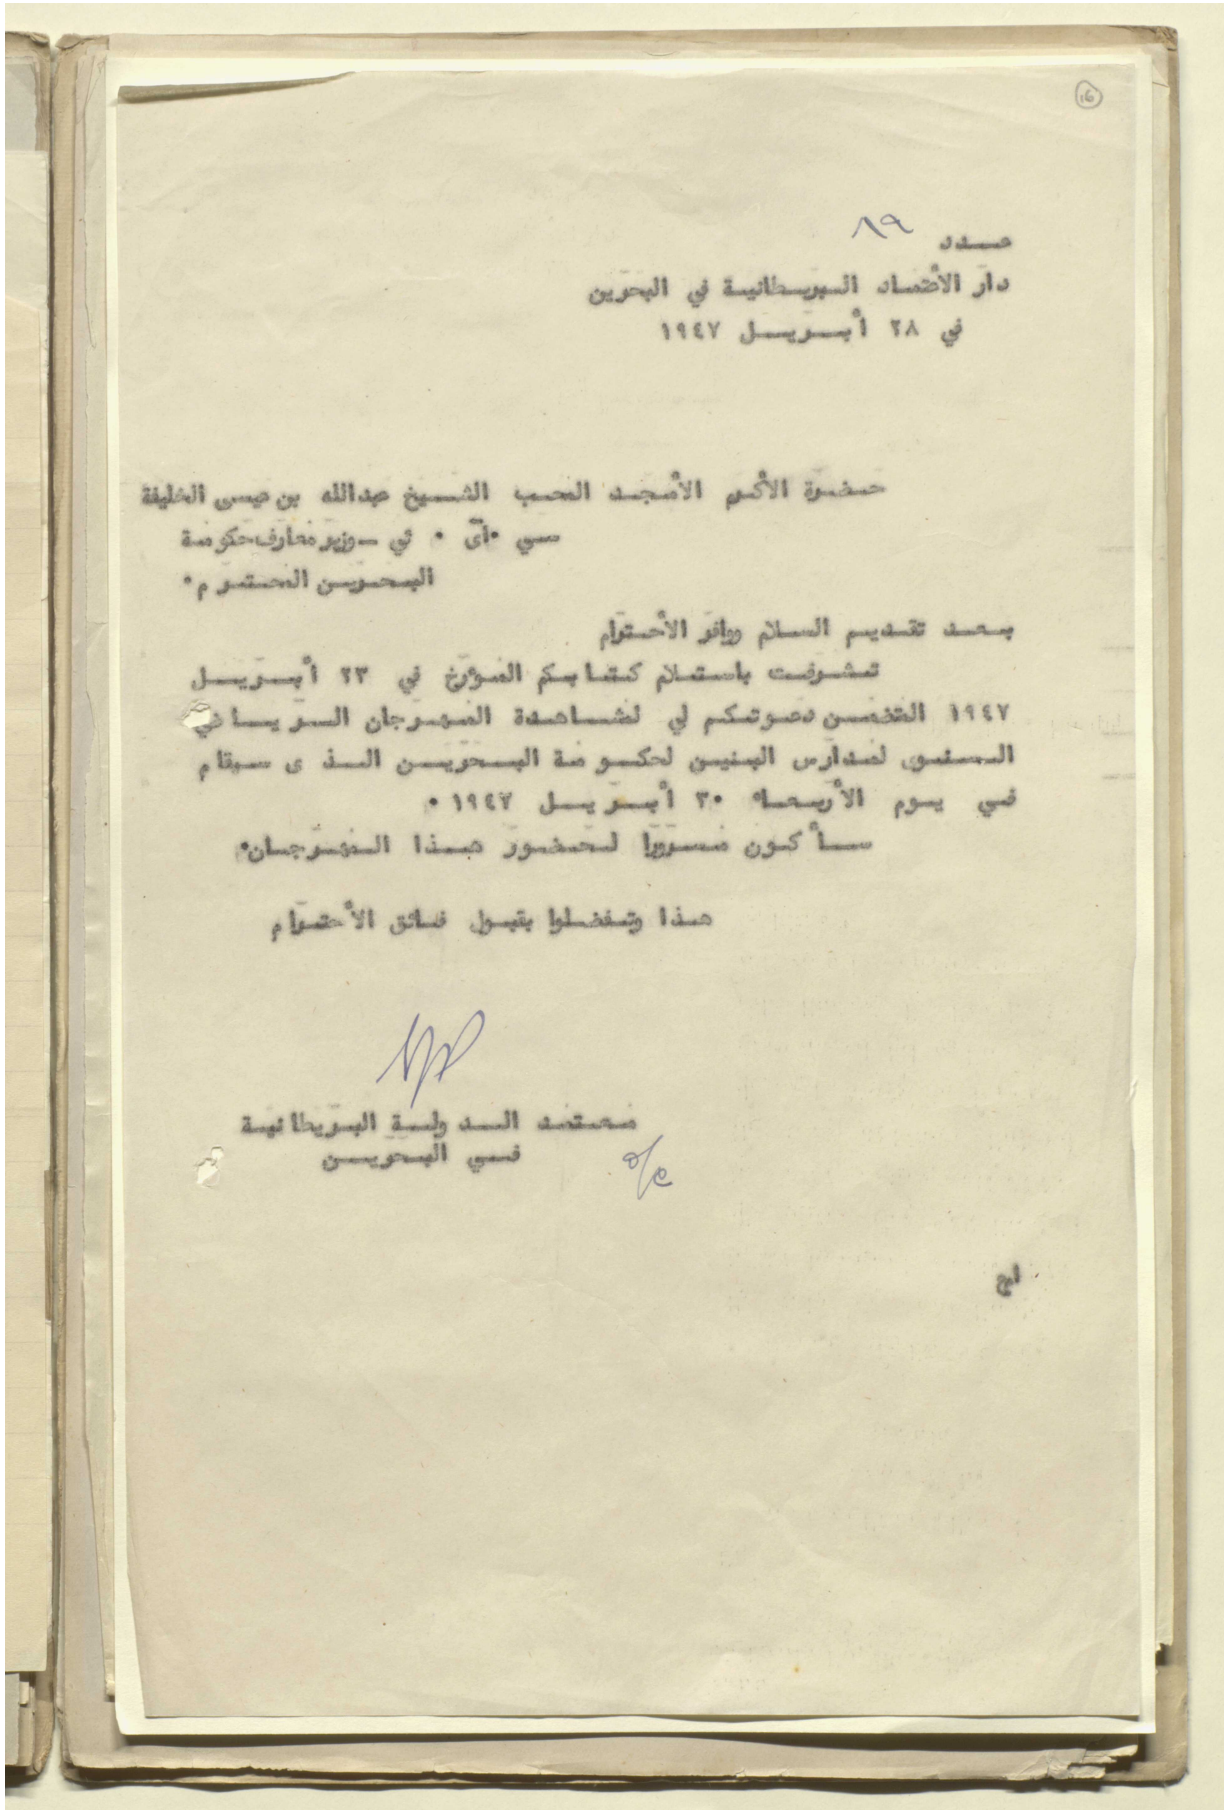 16
عدد ٨٩
دار الأعتماد البريطانية في البحرين
في ٢٨ أبريل ١٩٤٧
حضرة الأكرم الأمجد المحب الشيخ عبدالله بن عيسى الخليفة
سي ٠ أى ٠ ئي - وزير معارف حكومة
البحرين المحترم٠
بعد تقديم السلام ووافر الأحترام
تشرفت باستلام كتابكم المؤرخ في ٢٣ أبريل
١٩٤٧ المتضمن دعوتكم لي لمشاهدة المهرجان الرياضي
السنوى لمدارس البنين لحكومة البحرين الذى سيقام
في يوم الأربعاء ٣٠ أبريل ١٩٤٧ ٠
سأكون مسرورا لحضور هذا المهرجان٠
هذا وتفضلوا بقبول فائق الأحترام
معتمد الدولة البريطانية
في البحرين
o/c